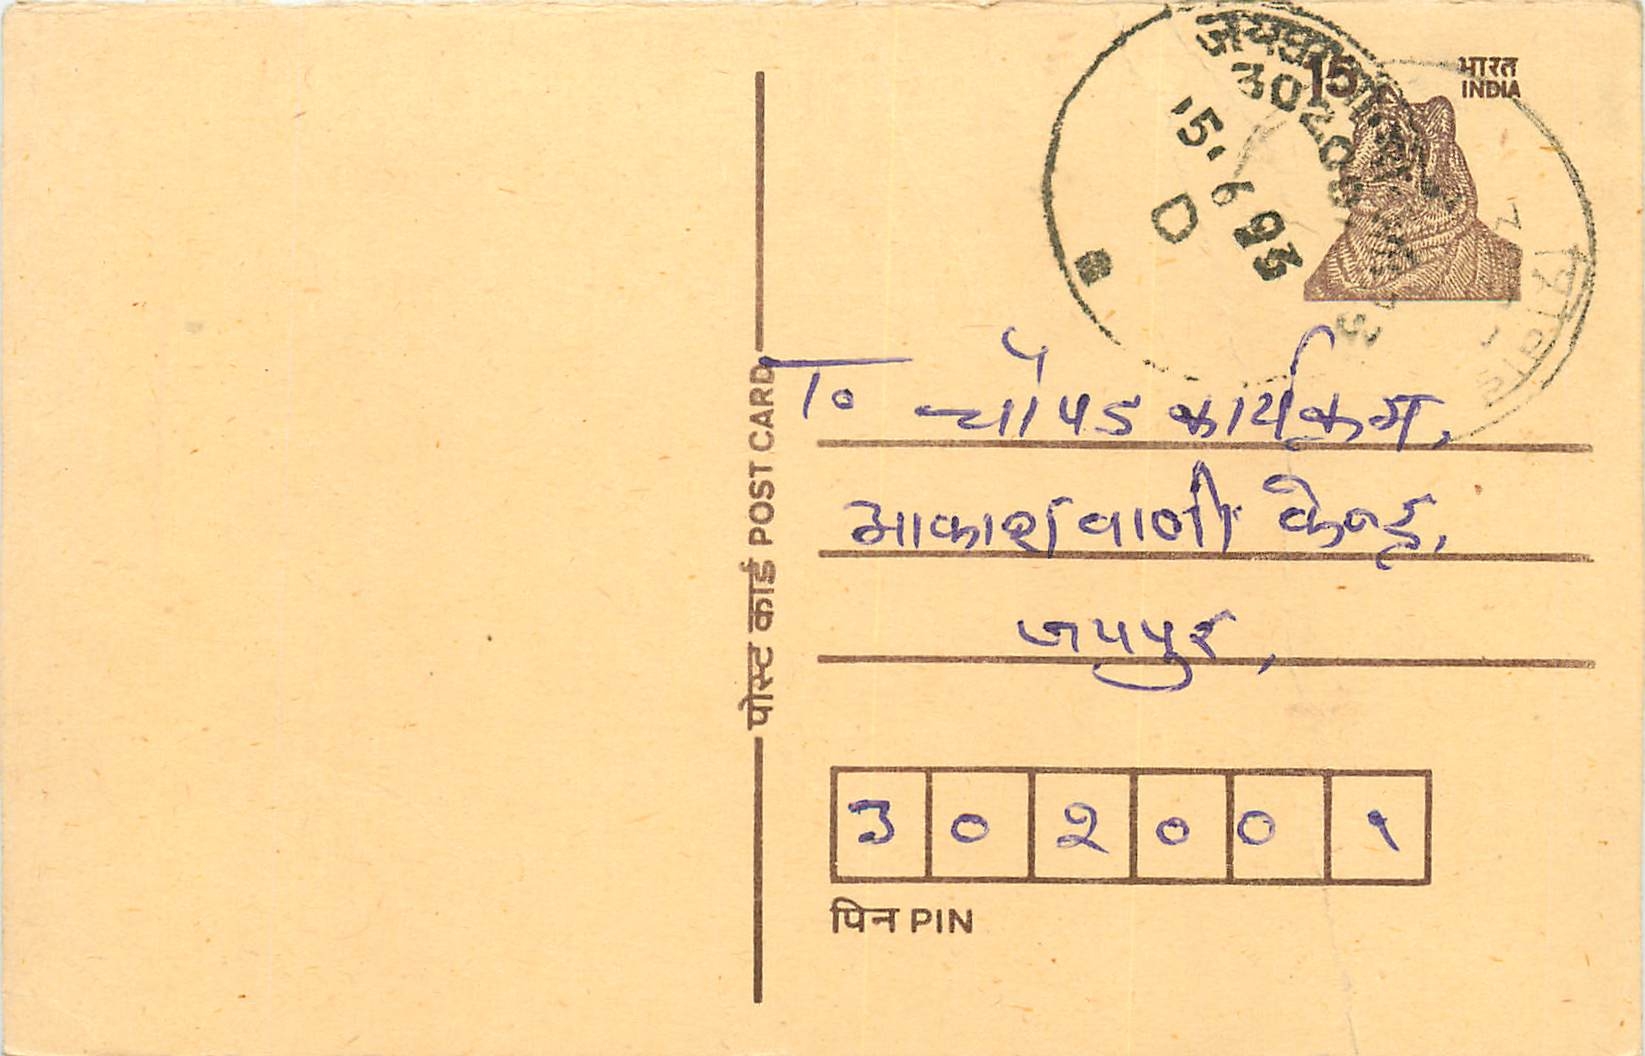 भारत
INDIA
15
302
15 6 93
D
पोस्ट कार्ड POST CARD
To चौपड कार्यक्रम,
आकाशवाणी केन्द्र,
जयपुर,
३ ० २ ० ० १
पिन PIN